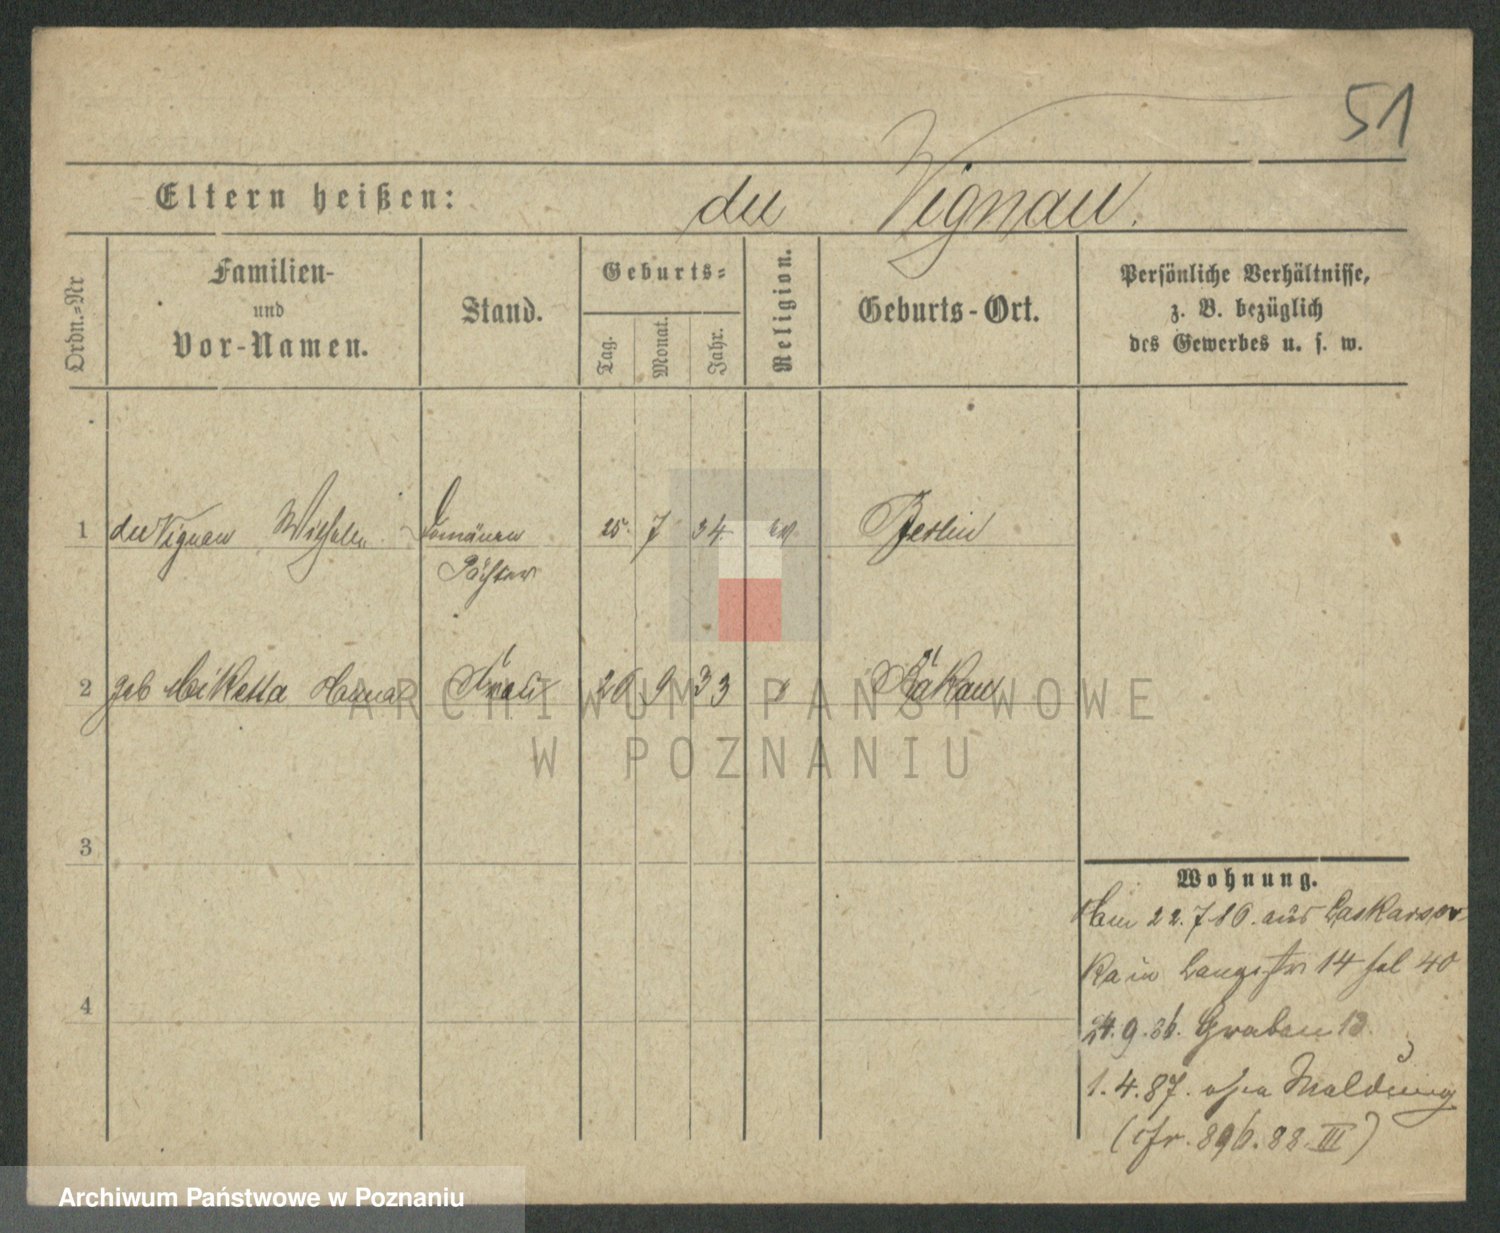 51
Eltern heißen: du Vignau.
Ordn.-Nr
Familien-
und
Vor-Namen.
Stand.
Geburts-
Tag.
Monat.
Jahr.
Religion.
Geburts-Ort.
Persönliche Verhältnisse,
z. B. bezüglich
des Gewerbes u. s. w.
1 du Vignau Wilhelm Domänen 25. 7 34 ev. Berlin
Pächter
2 geb Miketta Frau 26 9 33 Rakau
3
4
Wohnung.
22.7 86. aus Laskarsew-
ka in Langestr 14 fol 40
24.9.86. Graben 13.
1.4.87. ohne Meldung
(cfr. 896.88.III)
ARCHIWUM PAŃSTWOWE
W POZNANIU
Archiwum Państwowe w Poznaniu